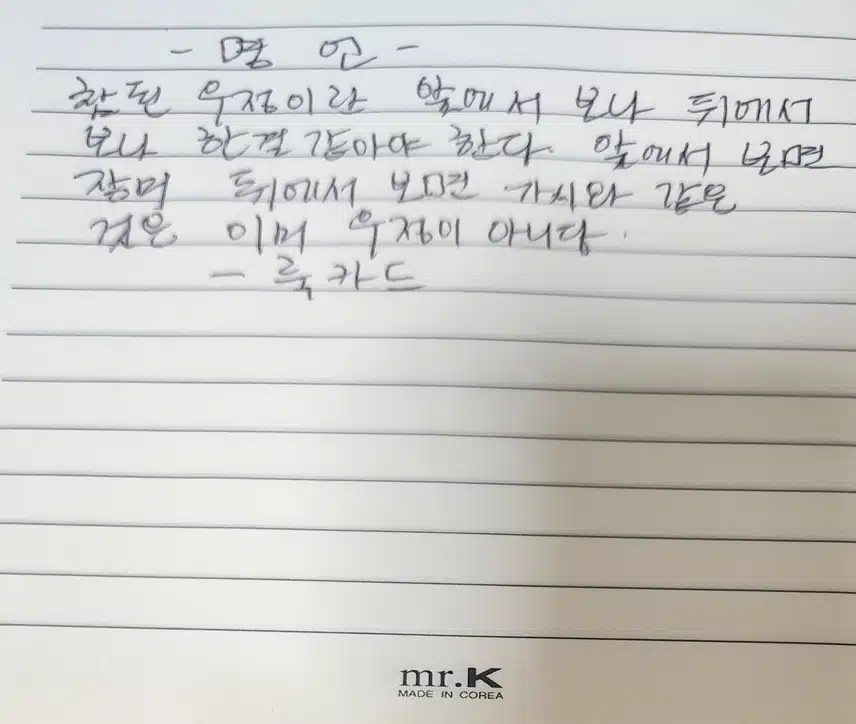 - 명 언 -
참된 우정이란 앞에서 보나 뒤에서
보나 한결 같아야 한다. 앞에서 보면
장미 뒤에서 보면 가시와 같은
것은 이미 우정이 아니다.
- 룩카드
mr.K
MADE IN COREA